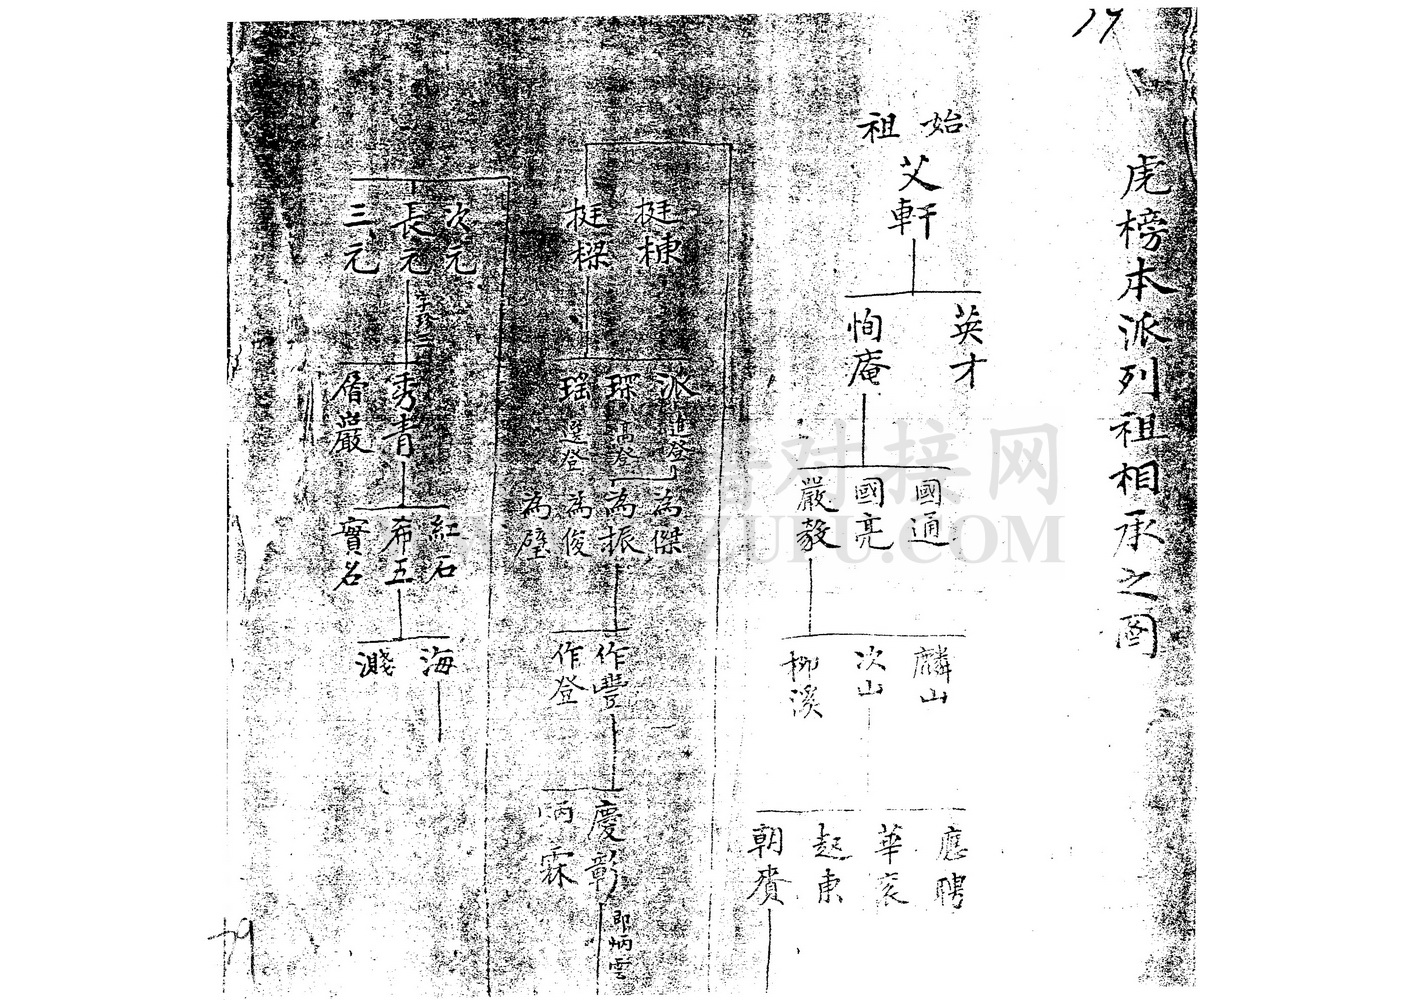 虎榜本派列祖相承之圖
始祖
艾軒
英才
恂庵
國通
國亮
嚴毅
麟山
次山
柳溪
應聘
華袞
起東
朝賡
挺棟
挺樑
派 進登
琛 高登
瑤 選登
為傑
為振
為俊
為璧
作豐
作登
慶彰
即炳雲
炳霖
次元
長元
三元
秀青
眉巖
紅石
希五
實名
海
濺
对接网
ZUPU.COM
19